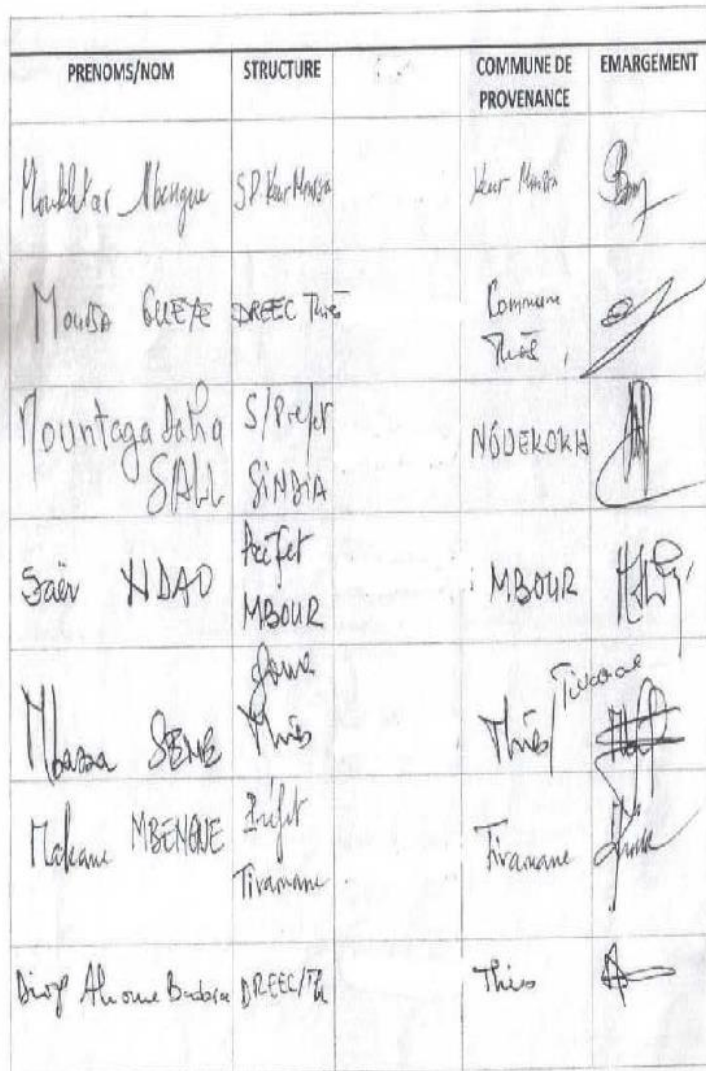 PRENOMS/NOM STRUCTURE COMMUNE DE PROVENANCE EMARGEMENT
Moukhtar Mbengue S.P. Keur Moussa Keur Moussa
Moussa GUEYE DREEC Thiès Commune Thiès
Mountaga Daha SALL S/Prefet SINDIA NGUEKOKH
Saër NDAO Préfet MBOUR MBOUR
Mbassa SENE Thiès Thiès/Tivaoune
Makane MBENGUE Préfet Tivaouane Tivaouane
Diop Alioune Badara DREEC/Th Thies